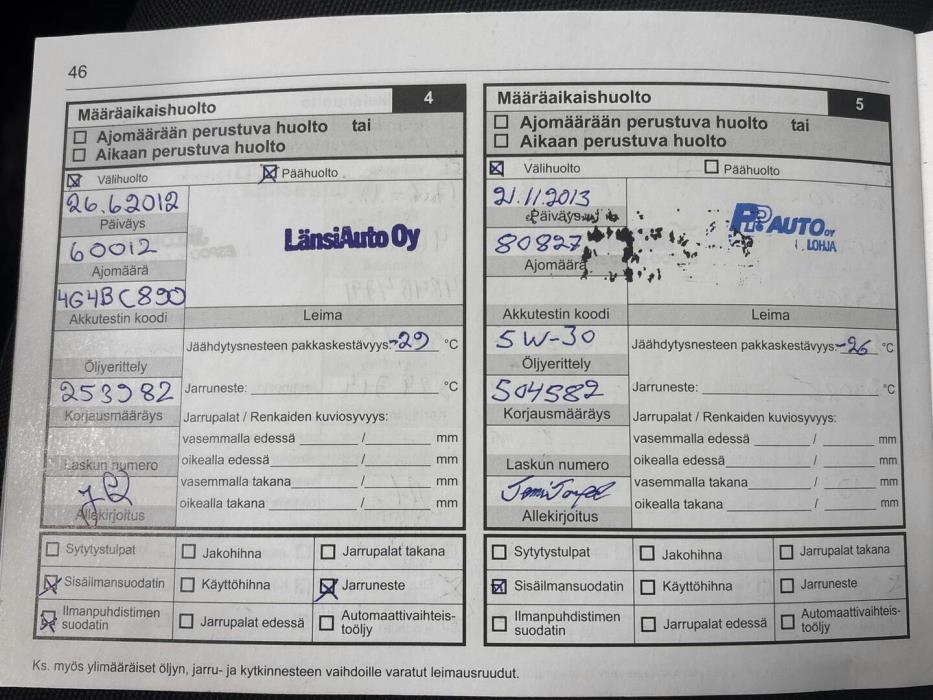 46
Määräaikaishuolto 4
Ajomäärään perustuva huolto tai
Aikaan perustuva huolto
Välihuolto Päähuolto
26.6.2012
Päiväys
60012
Ajomäärä
4G4BC890
Akkutestin koodi
LänsiAuto Oy
Leima
Jäähdytysnesteen pakkaskestävyys: -29 °C
Öljyerittely
253982
Jarruneste: °C
Korjausmääräys
Jarrupalat / Renkaiden kuviosyvyys:
vasemmalla edessä / mm
Laskun numero
oikealla edessä / mm
vasemmalla takana / mm
oikealla takana / mm
Allekirjoitus
Sytytystulpat Jakohihna Jarrupalat takana
Sisäilmansuodatin Käyttöhihna Jarruneste
Ilmanpuhdistimen
suodatin
Jarrupalat edessä
Automaattivaihteis-
toöljy
Määräaikaishuolto 5
Ajomäärään perustuva huolto tai
Aikaan perustuva huolto
Välihuolto Päähuolto
21.11.2013
Päiväys
80827
Ajomäärä
PP AUTO OY
LOHJA
Akkutestin koodi
Leima
5W-30
Jäähdytysnesteen pakkaskestävyys: -26 °C
Öljyerittely
504582
Jarruneste: °C
Korjausmääräys
Jarrupalat / Renkaiden kuviosyvyys:
vasemmalla edessä / mm
Laskun numero
oikealla edessä / mm
vasemmalla takana / mm
oikealla takana / mm
Allekirjoitus
Sytytystulpat Jakohihna Jarrupalat takana
Sisäilmansuodatin Käyttöhihna Jarruneste
Ilmanpuhdistimen
suodatin
Jarrupalat edessä
Automaattivaihteis-
toöljy
Ks. myös ylimääräiset öljyn, jarru- ja kytkinnesteen vaihdoille varatut leimausruudut.